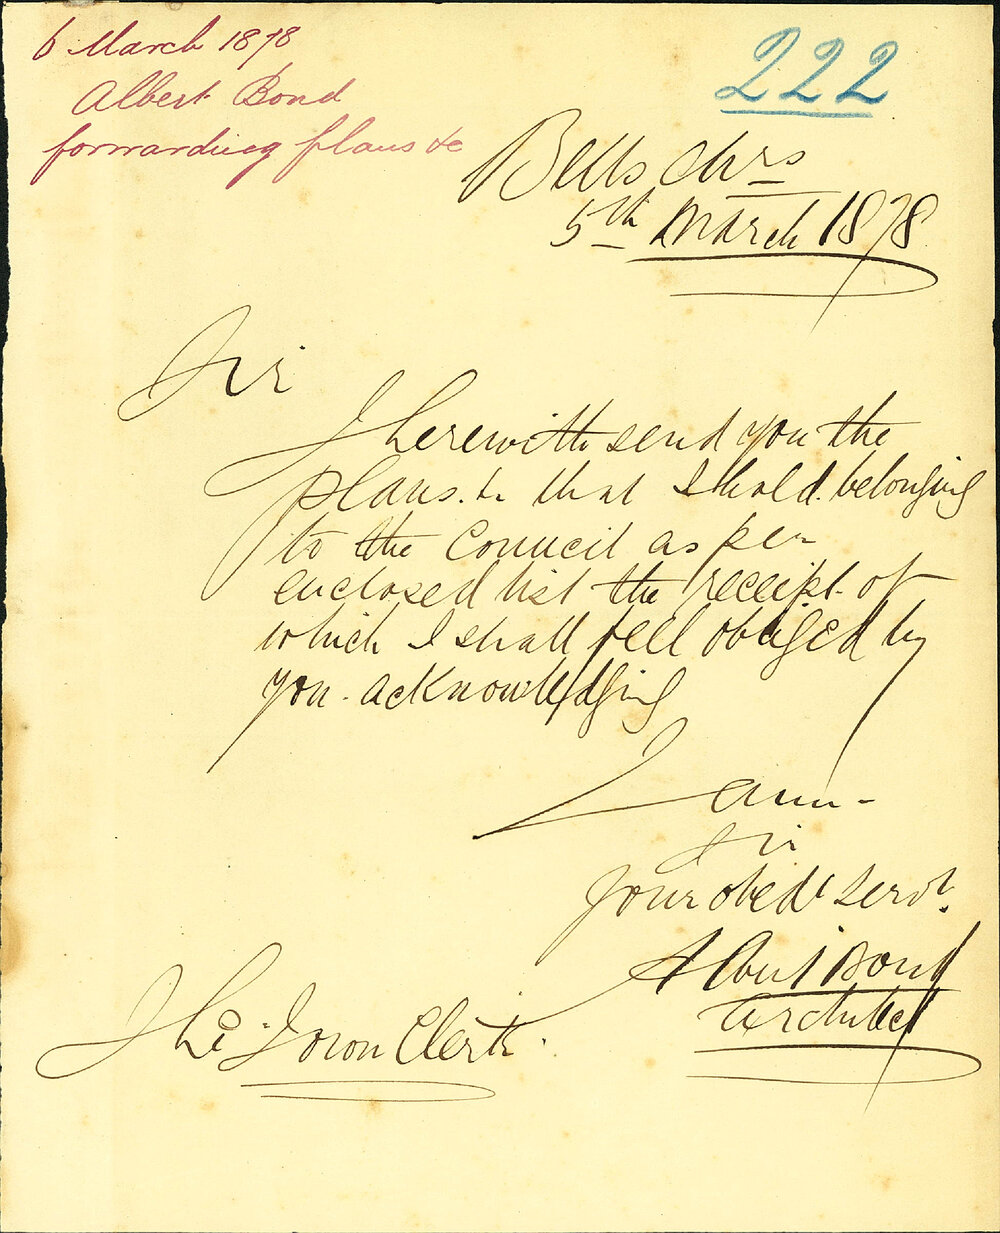 6 March 1878
Albert Bond
forwarding plans &c
222
Bells Chrs
5th March 1878
Sir
I herewith send you the
plans. &c that I hold. belonging
to the Council as per
enclosed list the receipt of
which I shall feel obliged by
you. acknowledging
I am -
Sir
Your obedt servt.
Albert Bond
Architect
The Town Clerk.